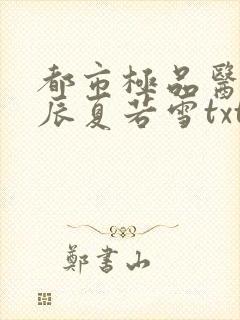 都市極品醫
辰夏若雪txt
鄭書山